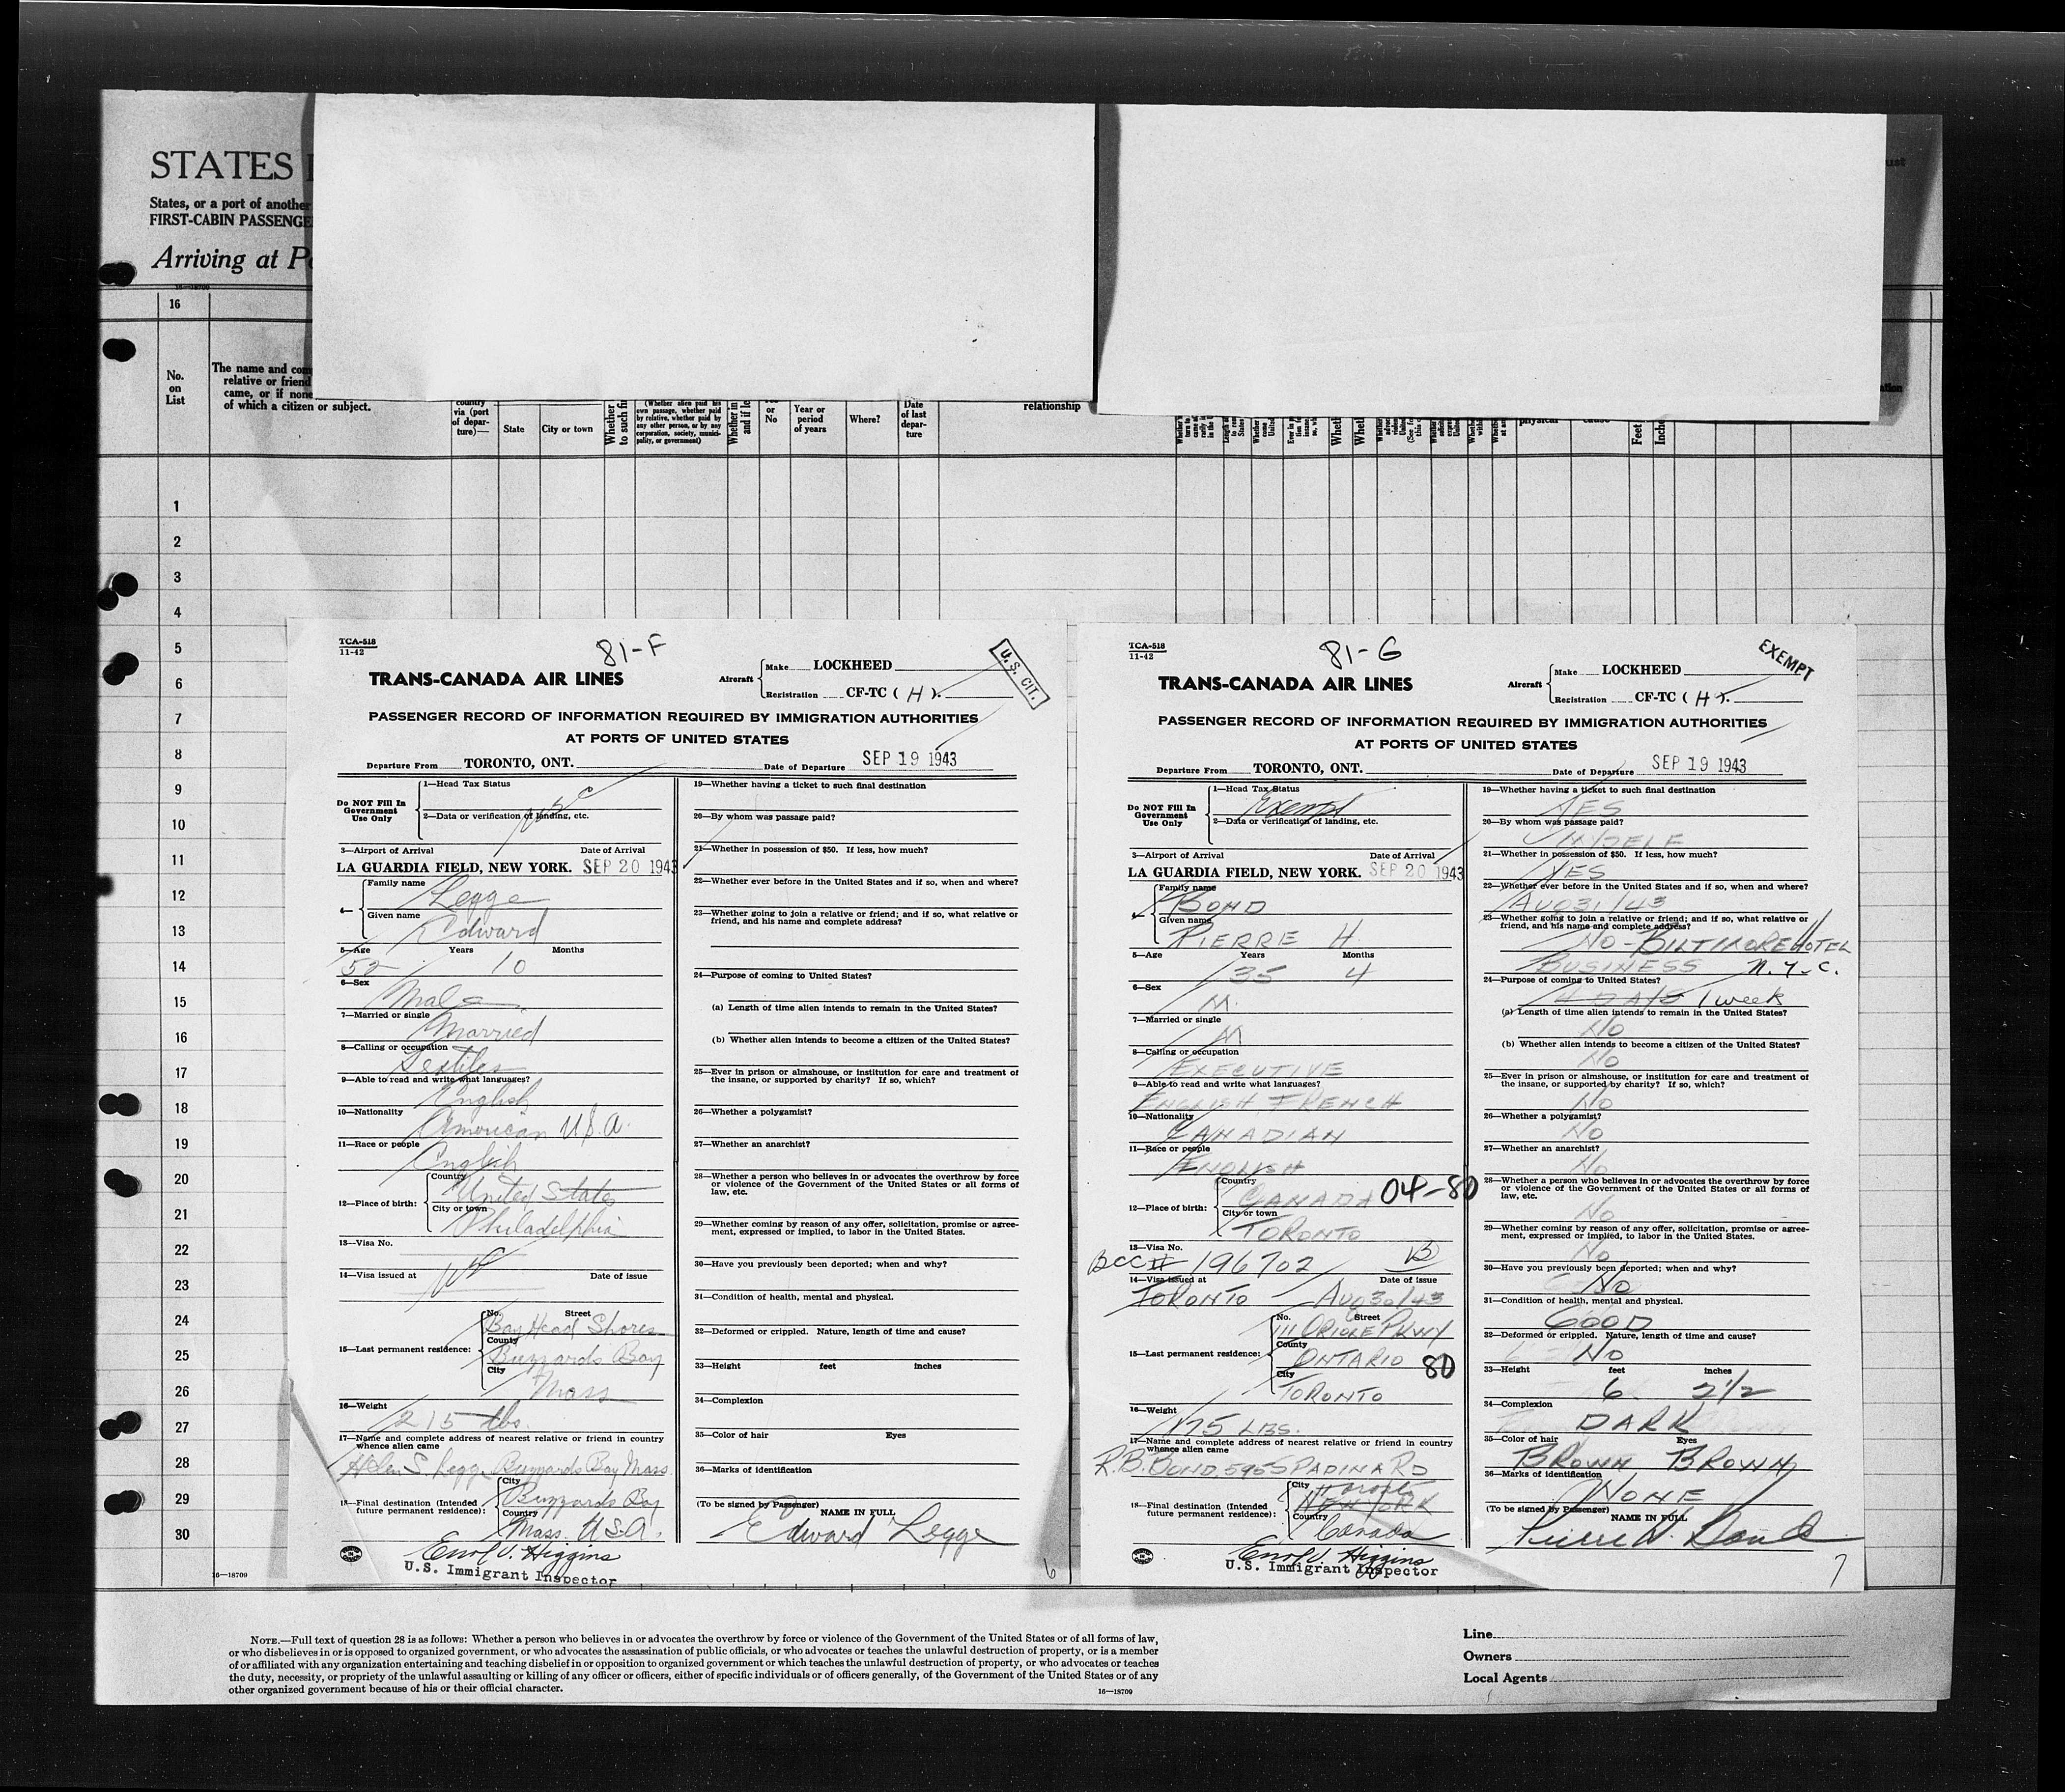 STATES
States, or a port of another
FIRST-CABIN PASSENGE
Arriving at Po
16—18709
16
No.
on
List
The name and com
relative or friend
came, or if none
of which a citizen or subject.
country
via (port
of depar-
ture)—
State
City or town
Whether
to such fi
(Whether alien paid his
own passage, whether paid
by relative, whether paid by
any other person, or by any
corporation, society, munici-
pality, or government)
Whether in
and if le
or
No
Year or
period
of years
Where?
Date
of last
depar-
ture
relationship
physical
cause
Feet
Inche
1
2
3
4
5
6
7
8
9
10
11
12
13
14
15
16
17
18
19
20
21
22
23
24
25
26
27
28
29
30
TCA-518
11-42
81-F
U.S. CIT.
TRANS-CANADA AIR LINES
Aircraft
Make LOCKHEED
Registration CF-TC ( H ).
PASSENGER RECORD OF INFORMATION REQUIRED BY IMMIGRATION AUTHORITIES
AT PORTS OF UNITED STATES
Departure From TORONTO, ONT. Date of Departure SEP 19 1943
Do NOT Fill In
Government
Use Only
1—Head Tax Status
USC
2—Data or verification of landing, etc.
3—Airport of Arrival Date of Arrival
LA GUARDIA FIELD, NEW YORK. SEP 20 1943
4—
Family name
Legge
Given name
Edward
5—Age Years Months
52 10
6—Sex
Male
7—Married or single
Married
8—Calling or occupation
Textiles
9—Able to read and write what languages?
English
10—Nationality
American U.S.A.
11—Race or people
English
12—Place of birth:
Country
United States
City or town
Philadelphia
13—Visa No.
14—Visa issued at Date of issue
15—Last permanent residence:
No. Street
Bay Head Shores
County
Buzzards Bay
City
Mass
16—Weight
215 lbs.
17—Name and complete address of nearest relative or friend in country
whence alien came
Helen S. Legge Buzzards Bay Mass.
18—Final destination (Intended
future permanent residence):
City
Buzzards Bay
Country
Mass. U.S.A.
Errol V. Higgins
U.S. Immigrant Inspector
19—Whether having a ticket to such final destination
20—By whom was passage paid?
21—Whether in possession of $50. If less, how much?
22—Whether ever before in the United States and if so, when and where?
23—Whether going to join a relative or friend; and if so, what relative or
friend, and his name and complete address?
24—Purpose of coming to United States?
(a) Length of time alien intends to remain in the United States?
(b) Whether alien intends to become a citizen of the United States?
25—Ever in prison or almshouse, or institution for care and treatment of
the insane, or supported by charity? If so, which?
26—Whether a polygamist?
27—Whether an anarchist?
28—Whether a person who believes in or advocates the overthrow by force
or violence of the Government of the United States or all forms of
law, etc.
29—Whether coming by reason of any offer, solicitation, promise or agree-
ment, expressed or implied, to labor in the United States.
30—Have you previously been deported; when and why?
31—Condition of health, mental and physical.
32—Deformed or crippled. Nature, length of time and cause?
33—Height feet inches
34—Complexion
35—Color of hair Eyes
36—Marks of identification
(To be signed by Passenger) NAME IN FULL
Edward Legge
6
TCA-518
11-42
81-G
EXEMPT
TRANS-CANADA AIR LINES
Aircraft
Make LOCKHEED
Registration CF-TC ( H ).
PASSENGER RECORD OF INFORMATION REQUIRED BY IMMIGRATION AUTHORITIES
AT PORTS OF UNITED STATES
Departure From TORONTO, ONT. Date of Departure SEP 19 1943
Do NOT Fill In
Government
Use Only
1—Head Tax Status
Exempt
2—Data or verification of landing, etc.
3—Airport of Arrival Date of Arrival
LA GUARDIA FIELD, NEW YORK. SEP 20 1943
4—
Family name
BOND
Given name
PIERRE H
5—Age Years Months
35 4
6—Sex
M.
7—Married or single
M
8—Calling or occupation
EXECUTIVE
9—Able to read and write what languages?
ENGLISH FRENCH
10—Nationality
CANADIAN
11—Race or people
ENGLISH
12—Place of birth:
Country
CANADA 04-80
City or town
TORONTO
13—Visa No.
BCC # 196702 B
14—Visa issued at Date of issue
TORONTO AUG 30/43
15—Last permanent residence:
No. Street
111 ORIOLE PKWY
County
ONTARIO 80
City
TORONTO
16—Weight
175 LBS.
17—Name and complete address of nearest relative or friend in country
whence alien came
R.B. BOND, 595 SPADINA RD
18—Final destination (Intended
future permanent residence):
City
Toronto
NEW YORK
Country
Canada
Errol V. Higgins
U.S. Immigrant Inspector
19—Whether having a ticket to such final destination
YES
20—By whom was passage paid?
MYSELF
21—Whether in possession of $50. If less, how much?
YES
22—Whether ever before in the United States and if so, when and where?
AUG 31/43
23—Whether going to join a relative or friend; and if so, what relative or
friend, and his name and complete address?
NO - BILTMORE HOTEL
BUSINESS N.Y.C.
24—Purpose of coming to United States?
4 DAYS 1 week
(a) Length of time alien intends to remain in the United States?
No
(b) Whether alien intends to become a citizen of the United States?
No
25—Ever in prison or almshouse, or institution for care and treatment of
the insane, or supported by charity? If so, which?
No
26—Whether a polygamist?
No
27—Whether an anarchist?
No
28—Whether a person who believes in or advocates the overthrow by force
or violence of the Government of the United States or all forms of
law, etc.
No
29—Whether coming by reason of any offer, solicitation, promise or agree-
ment, expressed or implied, to labor in the United States.
No
30—Have you previously been deported; when and why?
No
31—Condition of health, mental and physical.
GOOD
32—Deformed or crippled. Nature, length of time and cause?
No
33—Height feet inches
6 2 1/2
34—Complexion
DARK
35—Color of hair Eyes
BROWN BROWN
36—Marks of identification
NONE
(To be signed by Passenger) NAME IN FULL
Pierre H. Bond
7
16—18709
NOTE.—Full text of question 28 is as follows: Whether a person who believes in or advocates the overthrow by force or violence of the Government of the United States or of all forms of law,
or who disbelieves in or is opposed to organized government, or who advocates the assassination of public officials, or who advocates or teaches the unlawful destruction of property, or is a member
of or affiliated with any organization entertaining and teaching disbelief in or opposition to organized government or which teaches the unlawful destruction of property, or who advocates or teaches
the duty, necessity, or propriety of the unlawful assaulting or killing of any officer or officers, either of specific individuals or of officers generally, of the Government of the United States or of any
other organized government because of his or their official character.
16—18709
Line
Owners
Local Agents